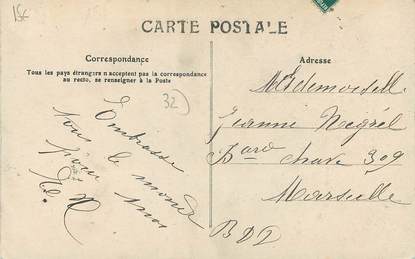 15c
CARTE POSTALE
Correspondance
Tous les pays étrangers n'acceptent pas la correspondance
au recto, se renseigner à la Poste
32
Embrasse
tous le monde
pour moi
Adresse
Mademoiselle
Jeanne Negrel
Bard chave 309
Marseille
BDR